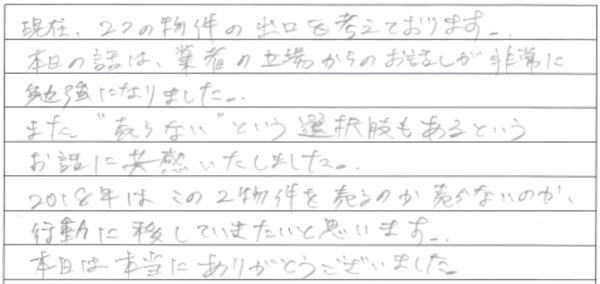 現在、2つの物件の出口を考えております。
本日の話は、業者の立場からのお話しが非常に
勉強になりました。
また"売らない"という選択肢もあるという
お話に共感いたしました。
2018年はこの2物件を売るのか売らないのか、
行動に移していきたいと思います。
本日は本当にありがとうございました。